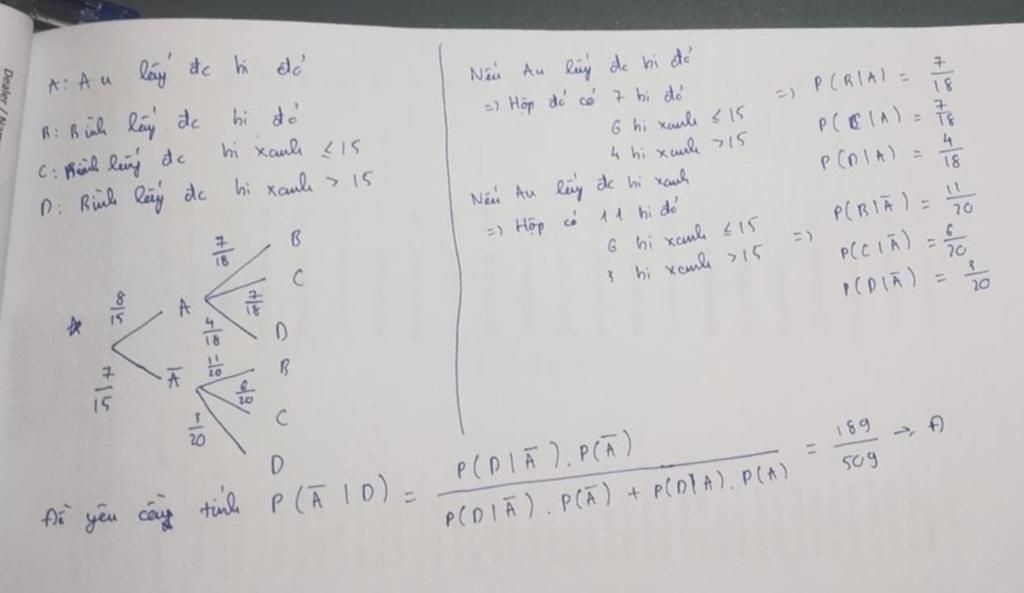 A: An lấy đc bi đỏ
B: Bình lấy đc bi đỏ
C: Bình lấy đc bi xanh ≤ 15
D: Bình lấy đc bi xanh > 15
8/15
7/15
A
Ā
7/18 B
7/18 C
4/18 D
11/20 B
6/20 C
3/20 D
Nếu An lấy đc bi đỏ
=> Hộp đó có 7 bi đỏ
6 bi xanh ≤ 15
4 bi xanh > 15
=> P(B|A) = 7/18
P(C|A) = 7/18
P(D|A) = 4/18
Nếu An lấy đc bi xanh
=> Hộp có 11 bi đỏ
6 bi xanh ≤ 15
3 bi xanh > 15
=> P(B|Ā) = 11/20
P(C|Ā) = 6/20
P(D|Ā) = 3/20
Đề yêu cầu tính P(Ā|D) = P(D|Ā).P(Ā) / P(D|Ā).P(Ā) + P(D|A).P(A) = 189/509 → A
Dealer /